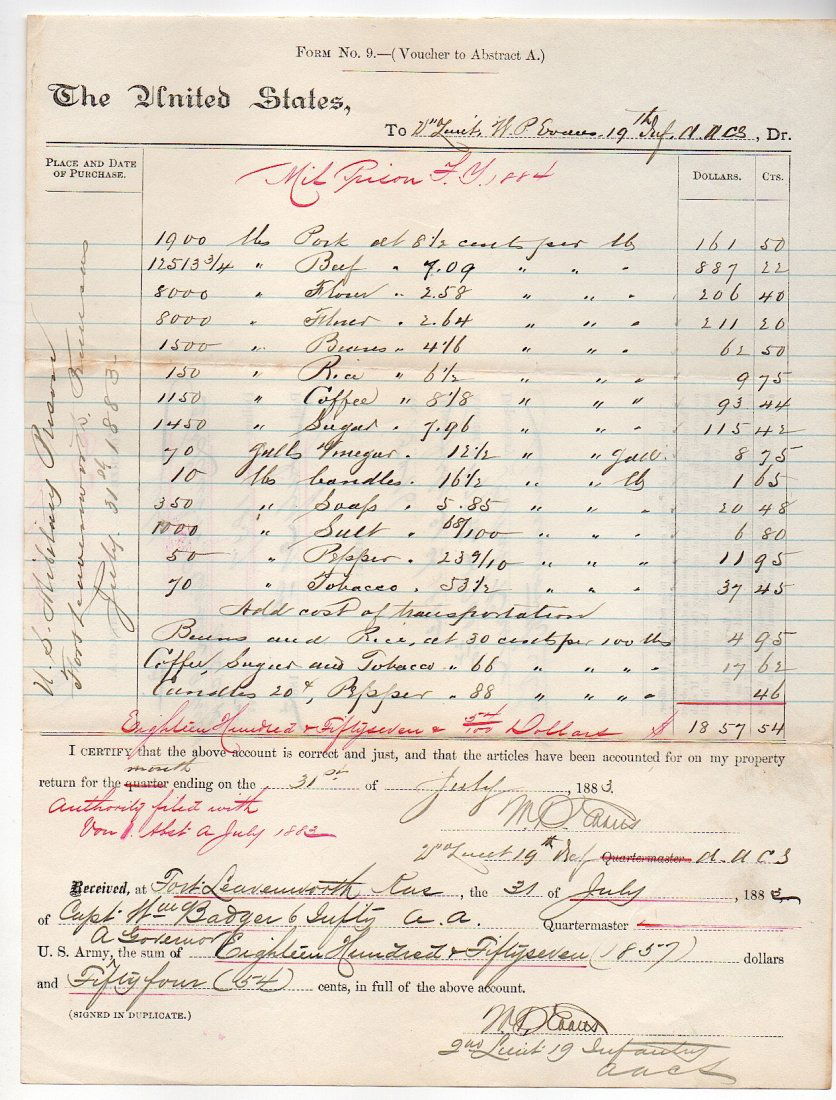 FORM NO. 9.—(Voucher to Abstract A.)
The United States,
To 2" Lieut. W. P. Evans. 19th Inf. A. A. C. S., Dr.
PLACE AND DATE OF PURCHASE. DOLLARS. CTS.
Mil Prison F. Y. 1884
U. S. Military Prison
Fort Leavenworth, Kansas
July 31st 1883
1900 lbs Pork at 8 1/2 cents per lb 161 50
12513 3/4 " Beef " 7.09 " " " 887 22
8000 " Flour " 2.58 " " " 206 40
8000 " Flour " 2.64 " " " 211 20
1500 " Beans " 4 1/6 " " " 62 50
150 " Rice " 6 1/2 " " " 9 75
1150 " Coffee " 8 1/8 " " " 93 44
1450 " Sugar " 7.96 " " " 115 42
70 galls Vinegar " 12 1/2 " " gall. 8 75
10 lbs Candles " 16 1/2 " " lb 1 65
350 " Soap " 5.85 " " " 20 48
1000 " Salt " 68/100 " " " 6 80
50 " Pepper " 23 9/10 " " " 11 95
70 " Tobacco " 53 1/2 " " " 37 45
Add cost of transportation
Beans and Rice, at 30 cents per 100 lbs 4 95
Coffee Sugar and Tobacco " 66 " " " 17 62
Candles 20¢, Pepper " 88 " " " " 46
Eighteen Hundred & Fiftyseven & 54/100 Dollars $ 1857 54
I CERTIFY that the above account is correct and just, and that the articles have been accounted for on my property
month
return for the quarter ending on the 31st of July, 1883.
Authority filed with
Vou 1. Abst A July 1883
W. P. Evans
2" Lieut 19th Inf Quartermaster A. A. C. S
Received, at Fort Leavenworth Kas, the 31 of July, 1883
of Capt Wm Badger 6 Infty A. A. Quartermaster
A Governor
U. S. Army, the sum of Eighteen Hundred & Fiftyseven (1857) dollars
and Fiftyfour (54) cents, in full of the above account.
(SIGNED IN DUPLICATE.)
W. P. Evans
2nd Lieut 19 Infantry
A A C S